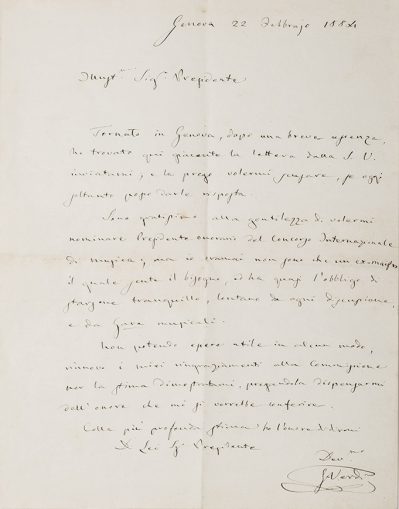 Genova 22 Febbrajo 1884
Illust.mo Sig.r Presidente
Tornato in Genova, dopo una breve assenza,
ho trovato qui giacente la lettera dalla S. V.
inviatami, e la prego volermi scusare, se oggi
soltanto posso darle risposta.
Sono gratissimo alla gentilezza di volermi
nominare Presidente onorario del Concorso Internazionale
di musica; ma io oramai non sono che un ex-maestro
il quale sente il bisogno, ed ha quasi l'obbligo di
starsene tranquillo, lontano da ogni
e da Gare musicali.
Non potendo essere utile in alcun modo,
rinnovo i miei ringraziamenti alla Commissione
per la stima dimostratami, pregandola dispensarmi
dall'onore che mi si vorrebbe conferire.
Colla più profonda stima ho l'onore di dirmi
Di Lei Sig. Presidente
Dev.mo
G. Verdi